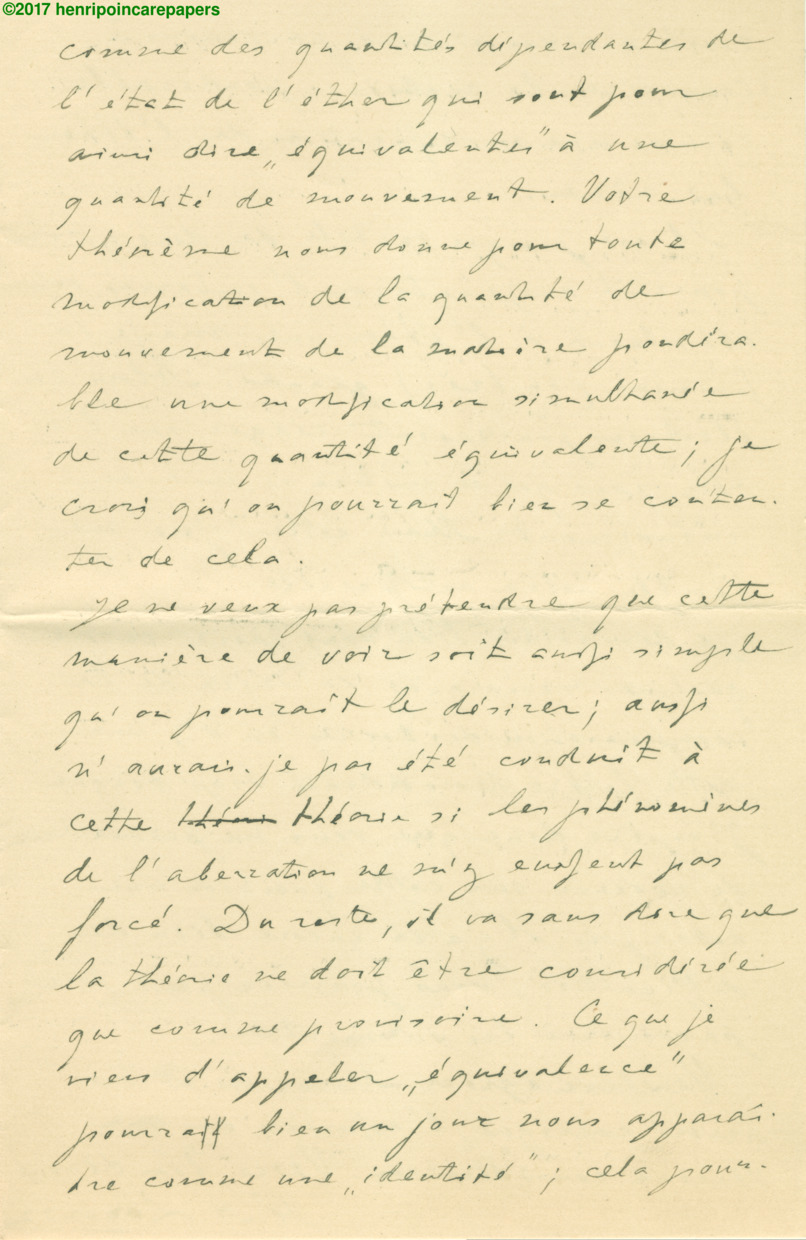 ©2017 henripoincarepapers
comme des quantités dépendantes de
l'état de l'éther qui sont pour
ainsi dire „équivalentes” à une
quantité de mouvement. Votre
théorème nous donne pour toute
modification de la quantité de
mouvement de la matière pondéra-
ble une modification simultanée
de cette quantité équivalente; je
crois qu'on pourrait bien se conten-
ter de cela.
Je ne veux pas prétendre que cette
manière de voir soit aussi simple
qu'on pourrait le désirer; aussi
n'aurais-je pas été conduit à
cette théorie si les phénomènes
de l'aberration ne m'y eussent pas
forcé. Du reste, il va sans dire que
la théorie ne doit être considérée
que comme provisoire. Ce que je
viens d'appeler „équivalence”
pourrait bien un jour nous apparaî-
tre comme une „identité”; cela pour-